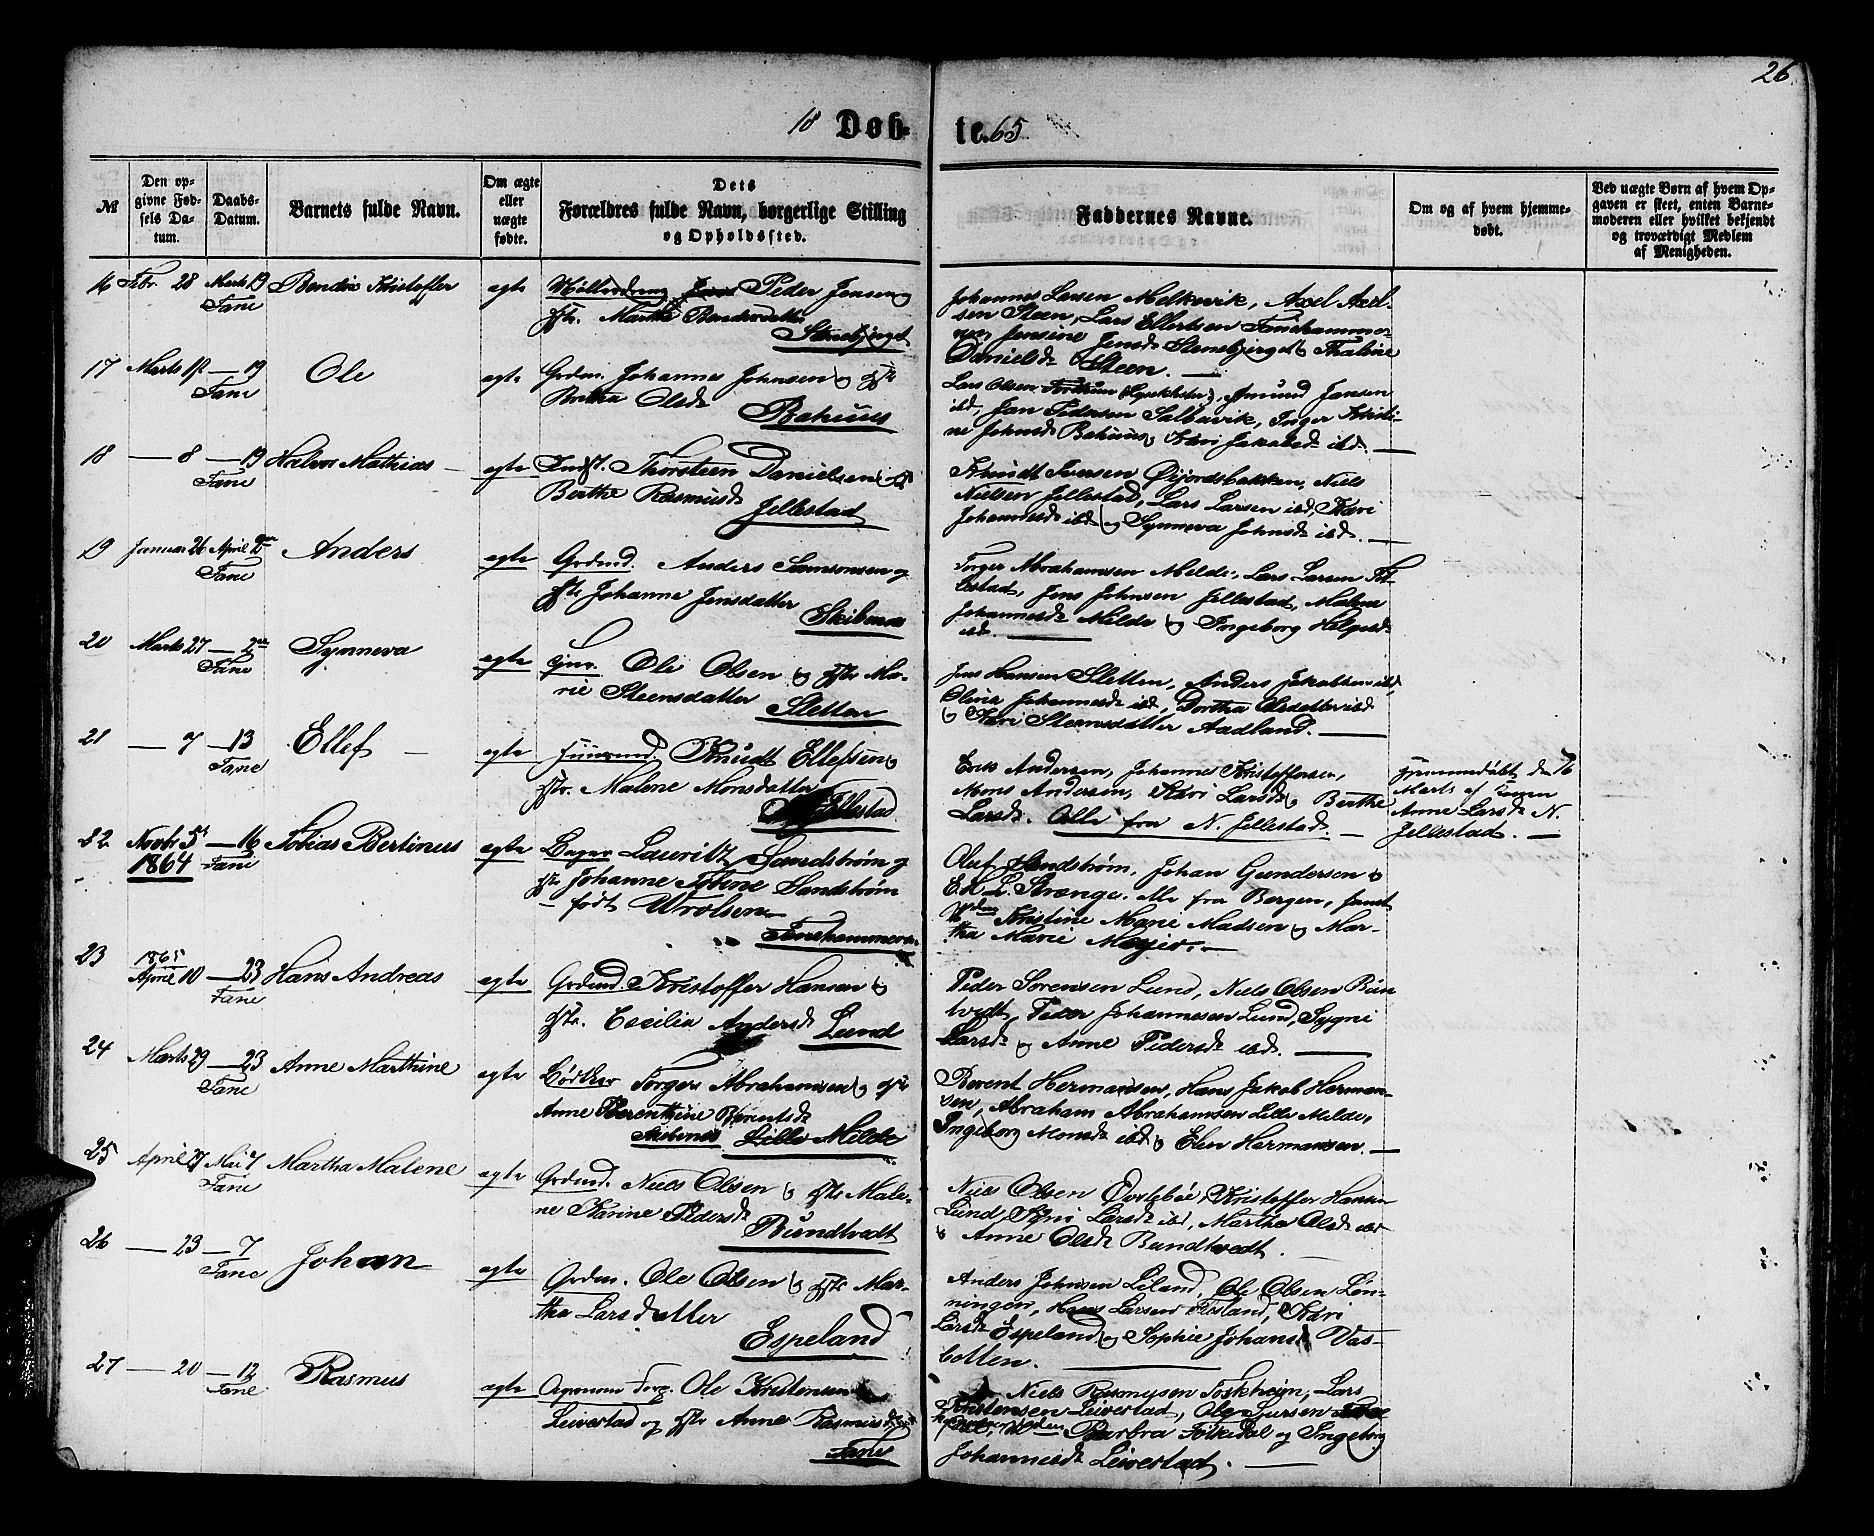 26
18 Døb-
te. 65
№
Den op-
givne Fød-
sels Da-
tum.
Daabs-
Datum.
Barnets fulde Navn.
Om ægte
eller
uægte
fødte.
Dets
Forældres fulde Navn, borgerlige Stilling
og Opholdssted.
Faddernes Navne.
Om og af hvem hjemme-
døbt.
Ved uægte Børn af hvem Op-
gaven er skeet, enten Barne-
moderen eller hvilket bekjendt
og troværdigt Medlem
af Menigheden.
16 Febr. 28 Marts 19 Bendix Kristoffer ægte Peder Jensen og
Fane
Hst. Martha Bendixdatter
Stenebjerget
Johannes Larsen Melkevik, Axel Axel-
sen Steen, Lars Ellertsen Fanehammer
Jensine Jensd. Stenebjerget Thaline
Danielsd. Steen.
17 Marts 12 — 19 Ole ægte Grdm. Johannes Johnsen og Hst.
Fane
Bertha Olsd.
Rahuus
Lars Olsen Amund Jansen
ibd, Jan Pedersen Salbuvik, Inger Kristi-
ne Johnsd. Rahuus og Kari Jakobsd. ibd.
18 — 8 — 19 Halvor Mathias ægte Indst. Thorsteen Danielsen og Hst
Fane
Berthe Rasmusd.
Jellestad
Knudt Iversen Øijordsbakken, Niels
Nielsen Jellestad, Lars Larsen ibd, Kari
Johannesd. ibd og Synneva Johnsd. ibd.
19 Januar 26 April 2den Anders ægte Grdmd. Anders Samsonsen og
Fane
Hst. Johanne Jensdatter
Skibenes
Torger Abrahamsen Milde, Lars Larsen Jel-
lestad, Jens Johnsen Jellestad, Malene
Johannesd. Milde og Ingeborg Helgesd.
ibd.
20 Marts 27 — 2den Synneva ægte Ole Olsen og Hst. Ma-
Fane
rie Steensdatter
Sletten
Jens Hansen Sletten, Anders Jakobsen ibd,
Olina Johannesd. ibd, Dortha Olsdatter ibd
og Kari Steensdatter Aadland.
21 — 7 — 13 Ellef ægte Knudt Ellefsen og
Fane
Hst. Malene Monsdatter
Jellestad
Erik Andersen, Johannes Kristoffersen,
Mons Andersen, Kari Larsd. og Berthe
Larsd. Alle fra N. Jellestad.
Hjemmedøbt den 16
Marts af
Anne Larsd. N.
Jellestad.
22. Novbr 5 — 16 Tobias Bertinus ægte Bager Lauritz Sandstrøm og
1864 Fane
Hst. Johanne Sandstrøm
født Wrolsen
Fanehammeren
Oluf Sandstrøm, Johan Gundersen og
E. H. L. Strange. Alle fra Bergen, samt
Kristine Marie Madsen og Mar-
tha Marie Meyer.
23 1865
April 10 — 23 Hans Andreas ægte Grdmd. Kristoffer Hansen og
Fane
Hst. Cecilia Andersd. Lund
Peder Sørensen Lund, Niels Olsen Bun-
tvedt, Peder Johannesen Lund, Sygni
Larsd. og Anne Pedersd. ibd.
24 Marts 29 — 23 Anne Marthine ægte Bødker Torger Abrahamsen og Hst.
Fane
Anne Berenthine Berentsd.
Skibenes Lille Milde
Berent Hermansen, Hans Jakob Herman-
sen, Abraham Abrahamsen Lille Milde,
Ingeborg Monsd. ibd og Elen Hermansen.
25 April 27 Mai 7 Martha Malene ægte Grdmd. Niels Olsen og Hst. Male-
Fane
ne Karine Pedersd.
Bundtvedt
Niels Olsen Øvrebøe, Kristoffer Hansen
Lund, Sygni Larsd. ibd, Martha Olsd. ibd
og Anne Olsd. Bundtvedt.
26 — 23 — 7 Johan ægte Grdm. Ole Olsen og Hst. Mar-
Fane
tha Larsdatter
Espeland
Anders Johnsen Liland, Ole Olsen Løn-
ningen, Hans Larsen Røsland, Kari
Larsd. Espeland og Sophie Johans Vas-
botten.
27 — 20 — 12 Rasmus ægte Agronom Ole Kristensen
Fane
Leivestad og Hst. Anne Rasmusd.
Fane
Niels Rasmusen Toskheim, Lars
Kristensen Leivestad, Ole Sjursen
Barbra Folkedal og Ingeborg
Johannesd. Leivestad.